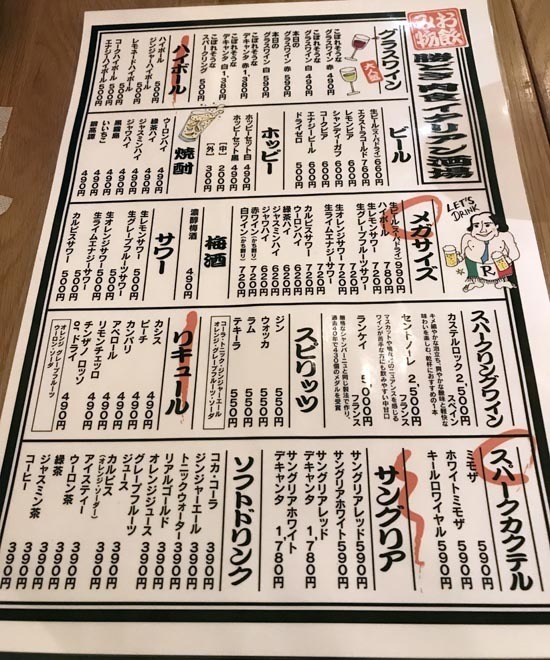 お飲み物
勝どき肉食イタリアン酒場
LET'S DRINK
R
グラスワイン
大人気
こぼれそうな
グラスワイン 赤 490円
こぼれそうな
グラスワイン 白 490円
本日の
グラスワイン 赤 590円
本日の
グラスワイン 白 590円
こぼれそうな
デキャンタ 赤 1,380円
こぼれそうな
デキャンタ 白 1,380円
こぼれそうな
スパークリング 500円
ハイボール
ハイボール 500円
ジンジャーハイボール 500円
レモネードハイボール 500円
コークハイボール 500円
エナジーハイボール 500円
ビール
生ビール(スーパードライ) 660円
エクストラゴールド 760円
レモンビア 600円
シャンディーガフ 600円
コークビア 600円
エナジービール 600円
ドライゼロ 500円
ホッピー
ホッピーセット白 490円
ホッピーセット黒 490円
【中】 200円
【外】 300円
焼酎
ウーロンハイ 490円
緑茶ハイ 490円
ジャスミンハイ 490円
黒霧島 490円
いいちこ 490円
鍛高譚 490円
メガサイズ
生ビール(スーパードライ) 990円
ハイボール 780円
生レモンサワー 780円
生グレープフルーツサワー 720円
生オレンジサワー 720円
生ライムエナジーサワー 720円
カルピスサワー 720円
ウーロンハイ 620円
緑茶ハイ 620円
ジャスミンハイ 620円
ジャワハイ 620円
赤ワイン(かち割り) 720円
白ワイン(かち割り) 720円
梅酒
濃醇梅酒 490円
サワー
生レモンサワー 500円
生グレープフルーツサワー 500円
生オレンジサワー 500円
生ライムエナジーサワー 500円
カルピスサワー 500円
スパークリングワイン
カステルロック 2,500円
スペイン
キメ細やかな泡立ち、爽やかな酸味と軽快な
味わいを楽しむ、乾杯におすすめの1本
セントノーレ 2,500円
フランス
ワインが苦手な方にも飲みやすい中甘口
ランケイ 5,000円
フランス
厳格なシャンパーニュと同じ製法で作り、
過去40年で430個のメダルを受賞
スピリッツ
ジン 550円
ウオッカ 550円
ラム 550円
テキーラ 550円
コーラ・トニック・ジンジャーエール
オレンジ・グレープフルーツ・ソーダ
リキュール
カシス 490円
ピーチ 490円
カンパリ 490円
アペロール 490円
リモンチェッロ 490円
チンザノ ロッソ
or ドライ 490円
オレンジ・グレープフルーツ
ウーロン・ソーダ
スパークカクテル
ミモザ 590円
ホワイトミモザ 590円
キールロワイヤル 590円
サングリア
サングリアレッド 590円
サングリアホワイト 590円
サングリアレッド
デキャンタ 1,780円
サングリアホワイト
デキャンタ 1,780円
ソフトドリンク
コカ・コーラ 390円
ジンジャーエール 390円
トニックウォーター 390円
リアルゴールド 390円
オレンジジュース 390円
グレープフルーツ
ジュース 390円
カルピス 390円
(オレンジ・ソーダ)
アイスティー 390円
ウーロン茶 390円
緑茶 390円
ジャスミン茶 390円
コーヒー 390円